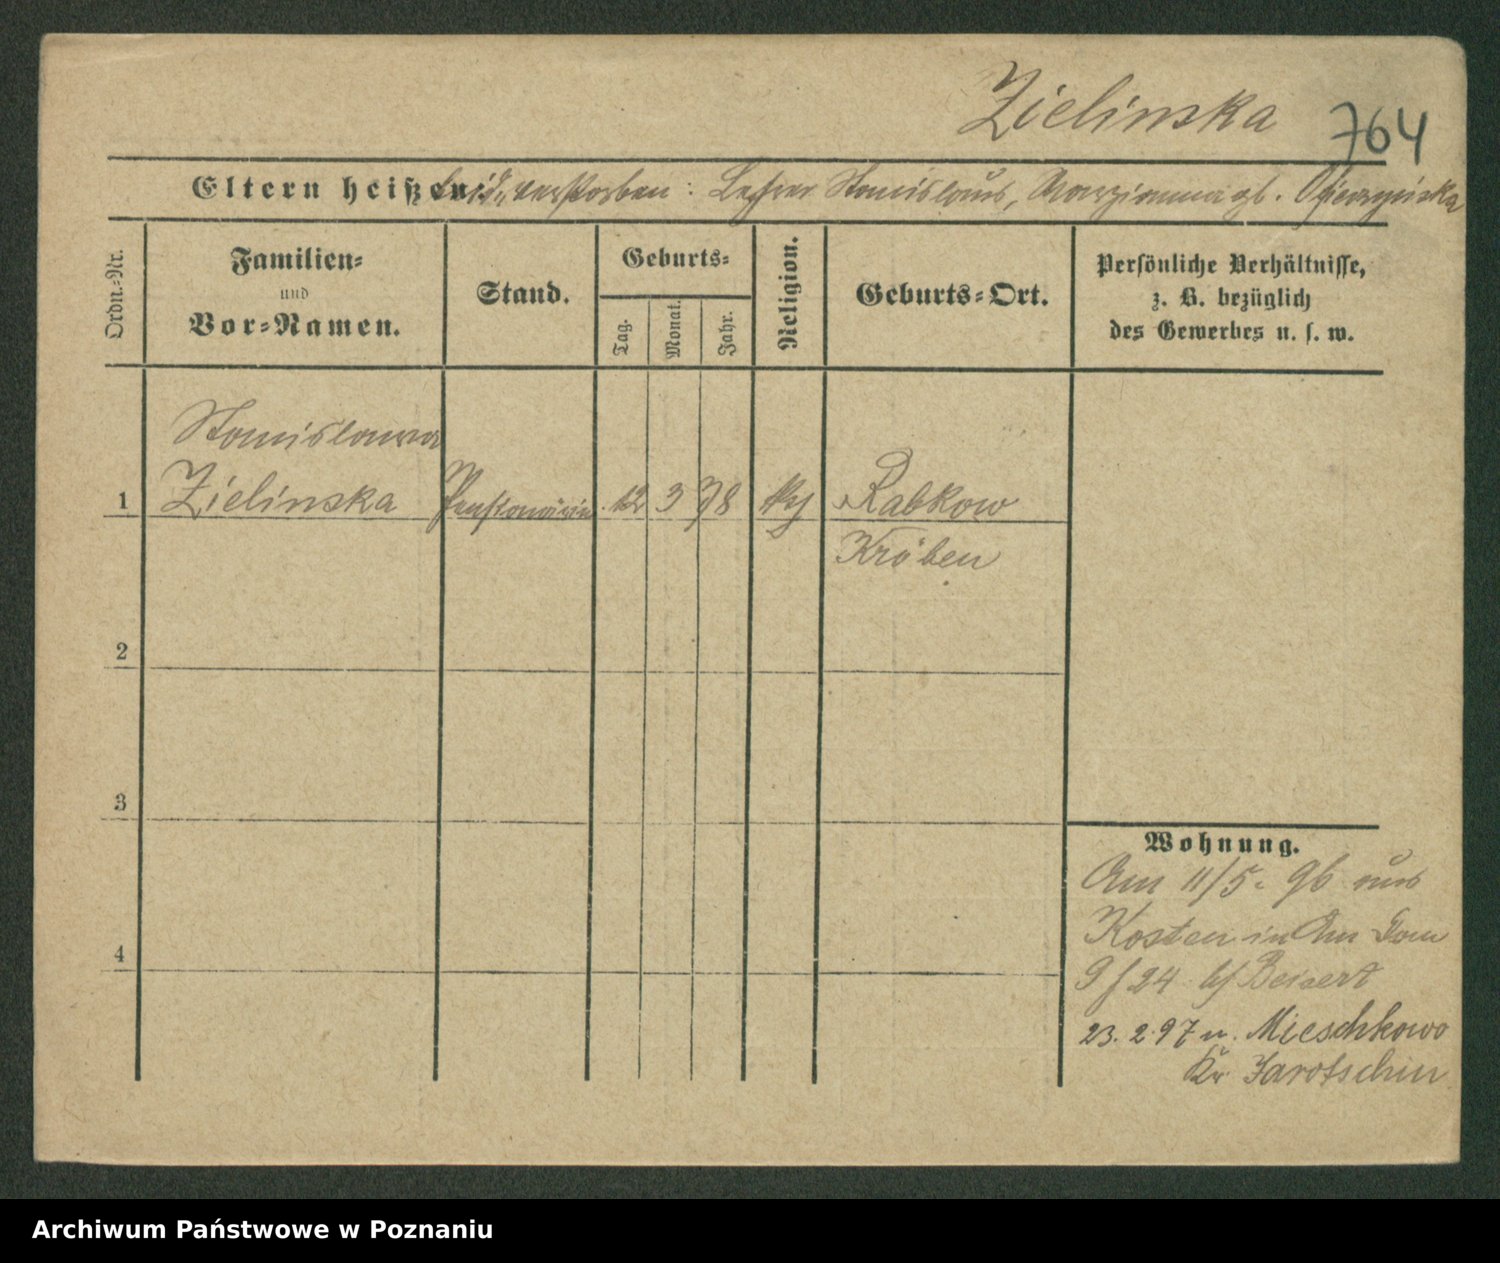 Zielinska 764
Eltern heißen: beide verstorben: Lehrer Stanislaus, Marzianna gb.
Ordn.-Nr.
Familien-
und
Vor-Namen.
Stand.
Geburts-
Tag.
Monat.
Jahr.
Religion.
Geburts-Ort.
Persönliche Verhältnisse,
z. B. bezüglich
des Gewerbes u. s. w.
Stanislawa
1 Zielinska Pensionärin 12 3 78 Rabkow
Kröben
2
3
4
Wohnung.
Am 11/5. 96 aus
Kosten in Am Dom
9 / 24 bf Beisert
23. 2. 97 n. Mieschkowo
Kr Jarotschin
Archiwum Państwowe w Poznaniu